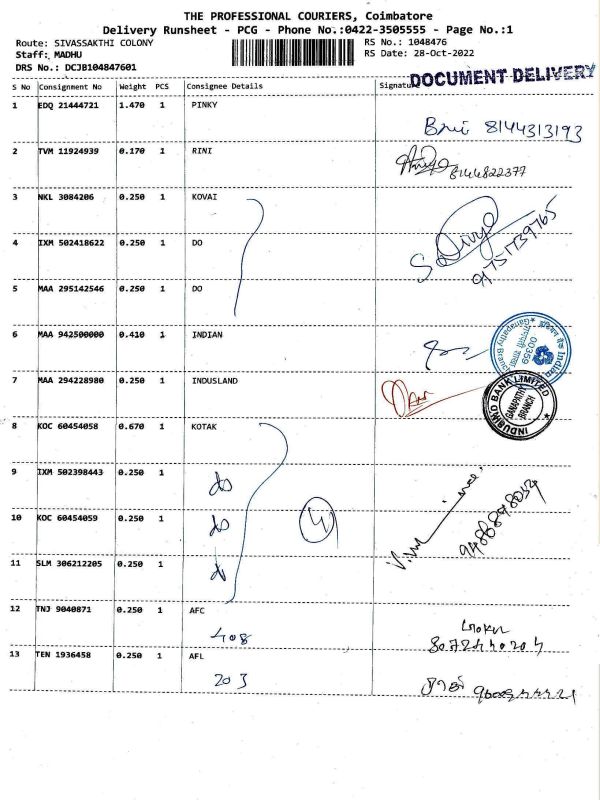 THE PROFESSIONAL COURIERS, Coimbatore
Delivery Runsheet - PCG - Phone No.:0422-3505555 - Page No.:1
Route: SIVASSAKTHI COLONY
RS No.: 1048476
Staff: MADHU
RS Date: 28-Oct-2022
DRS No.: DCJB104847601
DOCUMENT DELIVERY
S No Consignment No Weight PCS Consignee Details Signature
1 EDQ 21444721 1.470 1 PINKY
8144313193
2 TVM 11924939 0.170 1 RINI
8144822377
3 NKL 3084206 0.250 1 KOVAI
4 IXM 502418622 0.250 1 DO
Divya
9751739765
5 MAA 295142546 0.250 1 DO
6 MAA 942500000 0.410 1 INDIAN
Indian
Ganapathy Branch
00359
7 MAA 294228980 0.250 1 INDUSLAND
INDUSIND BANK LIMITED
GANAPATHY
BRANCH
8 KOC 60454058 0.670 1 KOTAK
9 IXM 502398443 0.250 1 do
10 KOC 60454059 0.250 1 do
4
11 SLM 306212205 0.250 1 do
12 TNJ 9040871 0.250 1 AFC
408
13 TEN 1936458 0.250 1 AFL
203